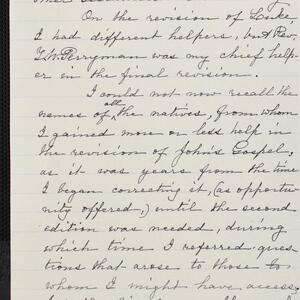 On the revision of Luke,
I had different helpers, but Rev.
T. W. Perryman was my chief help-
er in the final revision.
I could not now recall the
names of all the natives, from whom
I gained more or less help in
the revision of John's Gospel,
as it was years from the time
I began correcting it, (as opportu-
nity offered,) until the second
edition was needed, during
which time I referred ques-
tions that arose to those to
whom I might have access,